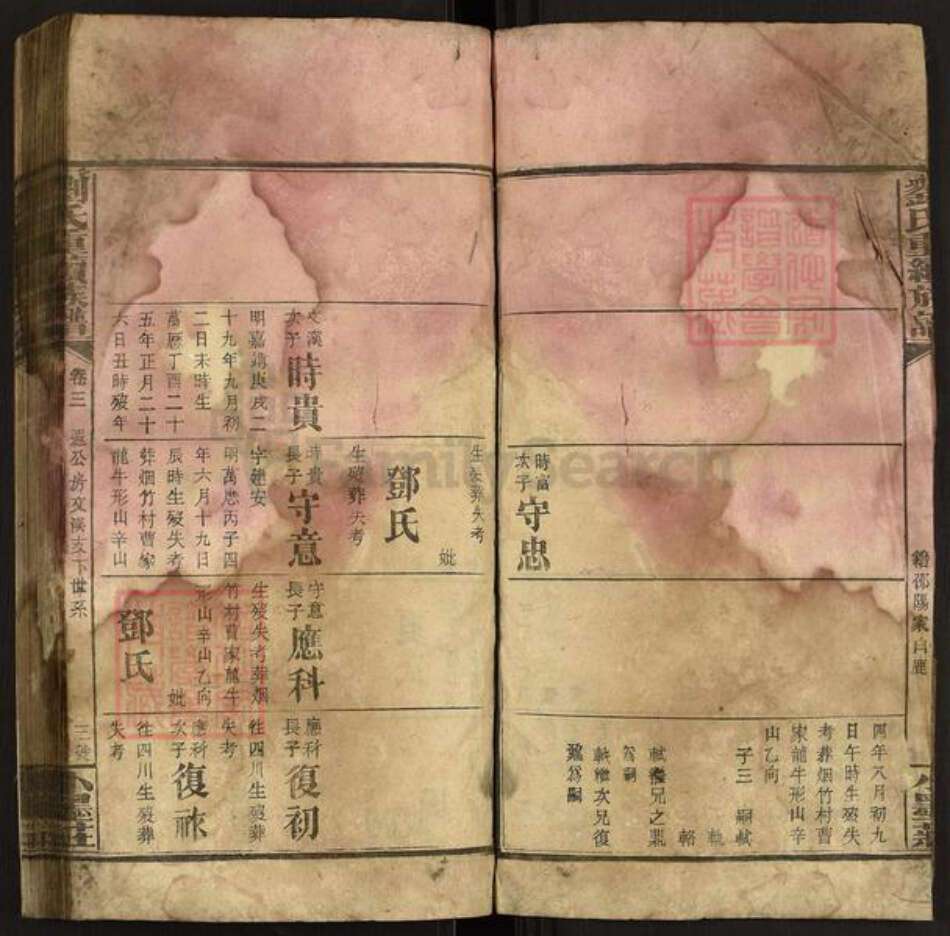 劉氏重續族譜
籍邵陽家白鹿
時富
次子
守忠
四年八月初九
日午時生殁失
考葬烟竹村曹
家龍牛形山辛
山乙向
子三 嗣軾
軌
輅
為嗣
軾繼次兄復
為嗣
生殁葬失考
妣
鄧氏
生殁葬失考
文漢
次子
時貴
明嘉靖庚戌二
十九年九月初
二日未時生
萬厯丁酉二十
五年正月二十
六日丑時殁年
時貴
長子
守意
字建安
明萬厯丙子四
年六月十九日
辰時生殁失考
葬烟竹村曹家
龍牛形山辛山
守意
長子
應科
生殁失考葬烟
竹村曹家龍牛
形山辛山乙向
妣
鄧氏
應科
長子
復初
往四川生殁葬
失考
應科
次子
復祿
往四川生殁葬
失考
劉氏重續族譜
卷三
公房文漢支下世系
FamilySearch